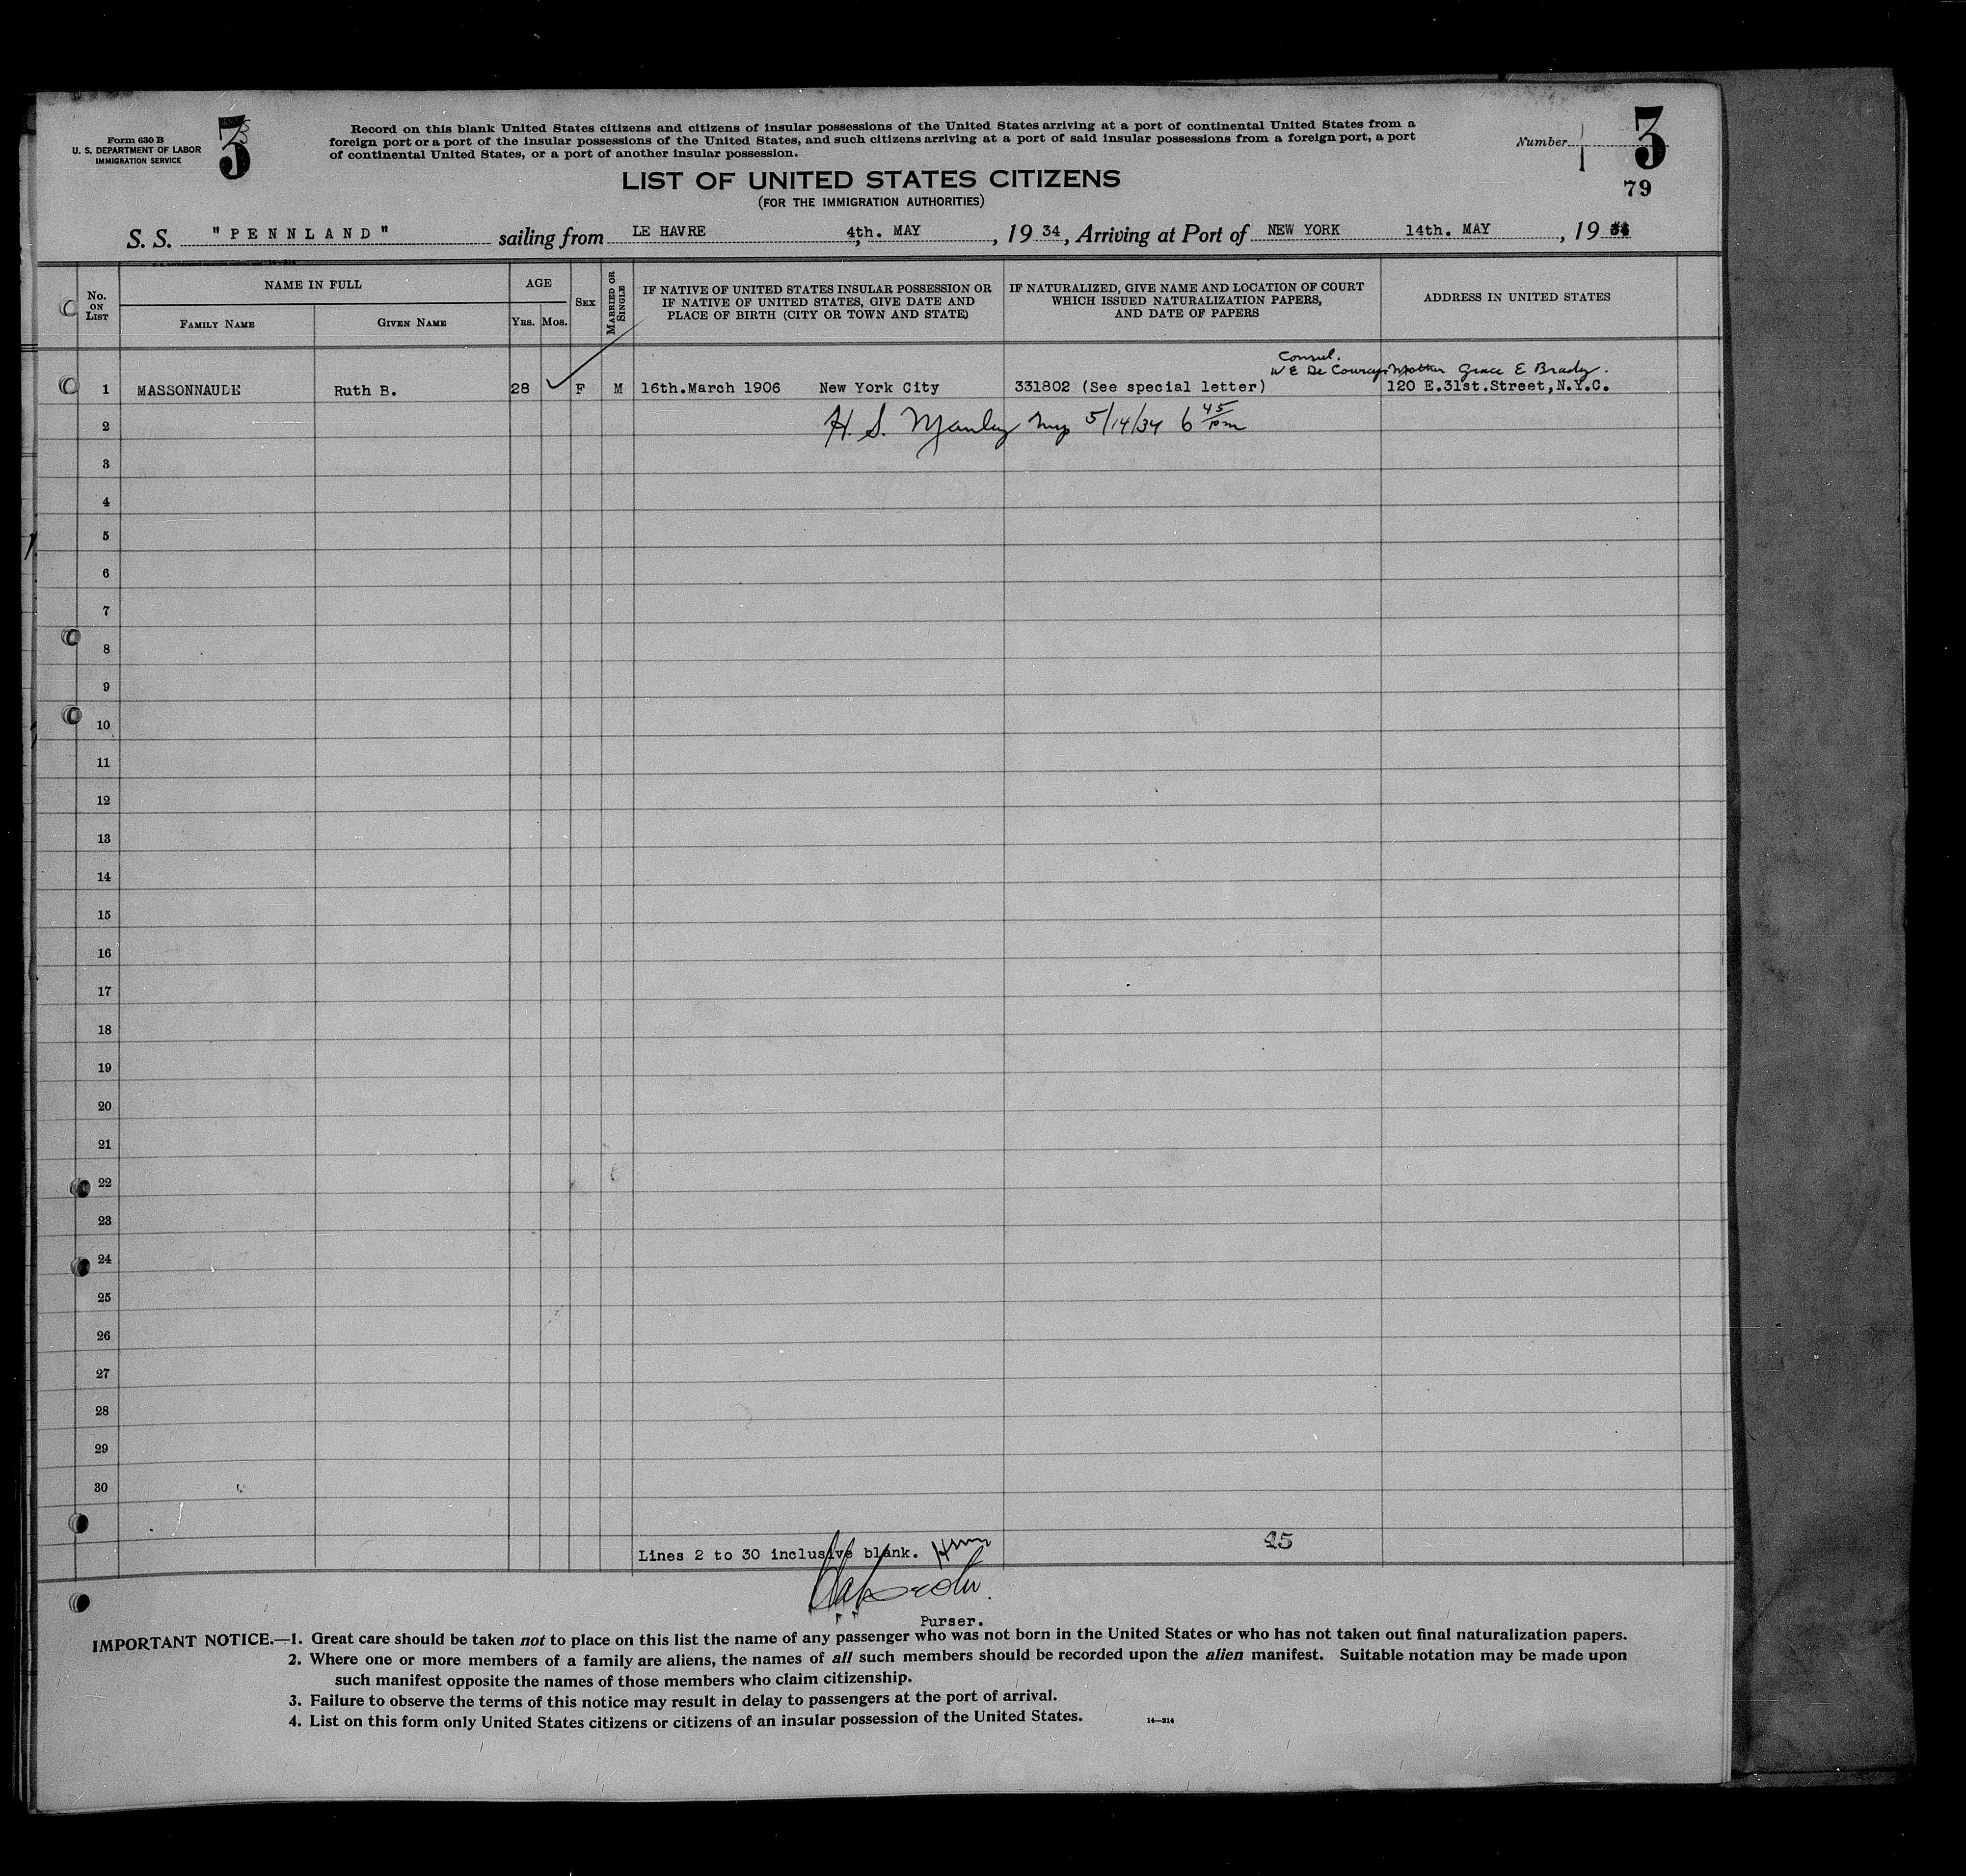 Form 630 B
U. S. DEPARTMENT OF LABOR
IMMIGRATION SERVICE
3
Record on this blank United States citizens and citizens of insular possessions of the United States arriving at a port of continental United States from a
foreign port or a port of the insular possessions of the United States, and such citizens arriving at a port of said insular possessions from a foreign port, a port
of continental United States, or a port of another insular possession.
Number
3
79
LIST OF UNITED STATES CITIZENS
(FOR THE IMMIGRATION AUTHORITIES)
S. S. "PENNLAND" sailing from LE HAVRE 4th. MAY, 19 34, Arriving at Port of NEW YORK 14th. MAY, 19
No. ON LIST
NAME IN FULL
FAMILY NAME
GIVEN NAME
AGE
YRS. MOS.
SEX
MARRIED OR SINGLE
IF NATIVE OF UNITED STATES INSULAR POSSESSION OR
IF NATIVE OF UNITED STATES, GIVE DATE AND
PLACE OF BIRTH (CITY OR TOWN AND STATE)
IF NATURALIZED, GIVE NAME AND LOCATION OF COURT
WHICH ISSUED NATURALIZATION PAPERS,
AND DATE OF PAPERS
ADDRESS IN UNITED STATES
Consul.
W E De Courcy Mother Grace E Brady.
1 MASSONNAUDE Ruth B. 28 F M 16th.March 1906 New York City 331802 (See special letter) 120 E.31st.Street,N.Y.C.
2 H. S. Manley 5/14/34 6 45 pm
3
4
5
6
7
8
9
10
11
12
13
14
15
16
17
18
19
20
21
22
23
24
25
26
27
28
29
30
25
Lines 2 to 30 inclusive blank.
Purser.
IMPORTANT NOTICE.—1. Great care should be taken not to place on this list the name of any passenger who was not born in the United States or who has not taken out final naturalization papers.
2. Where one or more members of a family are aliens, the names of all such members should be recorded upon the alien manifest. Suitable notation may be made upon
such manifest opposite the names of those members who claim citizenship.
3. Failure to observe the terms of this notice may result in delay to passengers at the port of arrival.
4. List on this form only United States citizens or citizens of an insular possession of the United States.
14—314